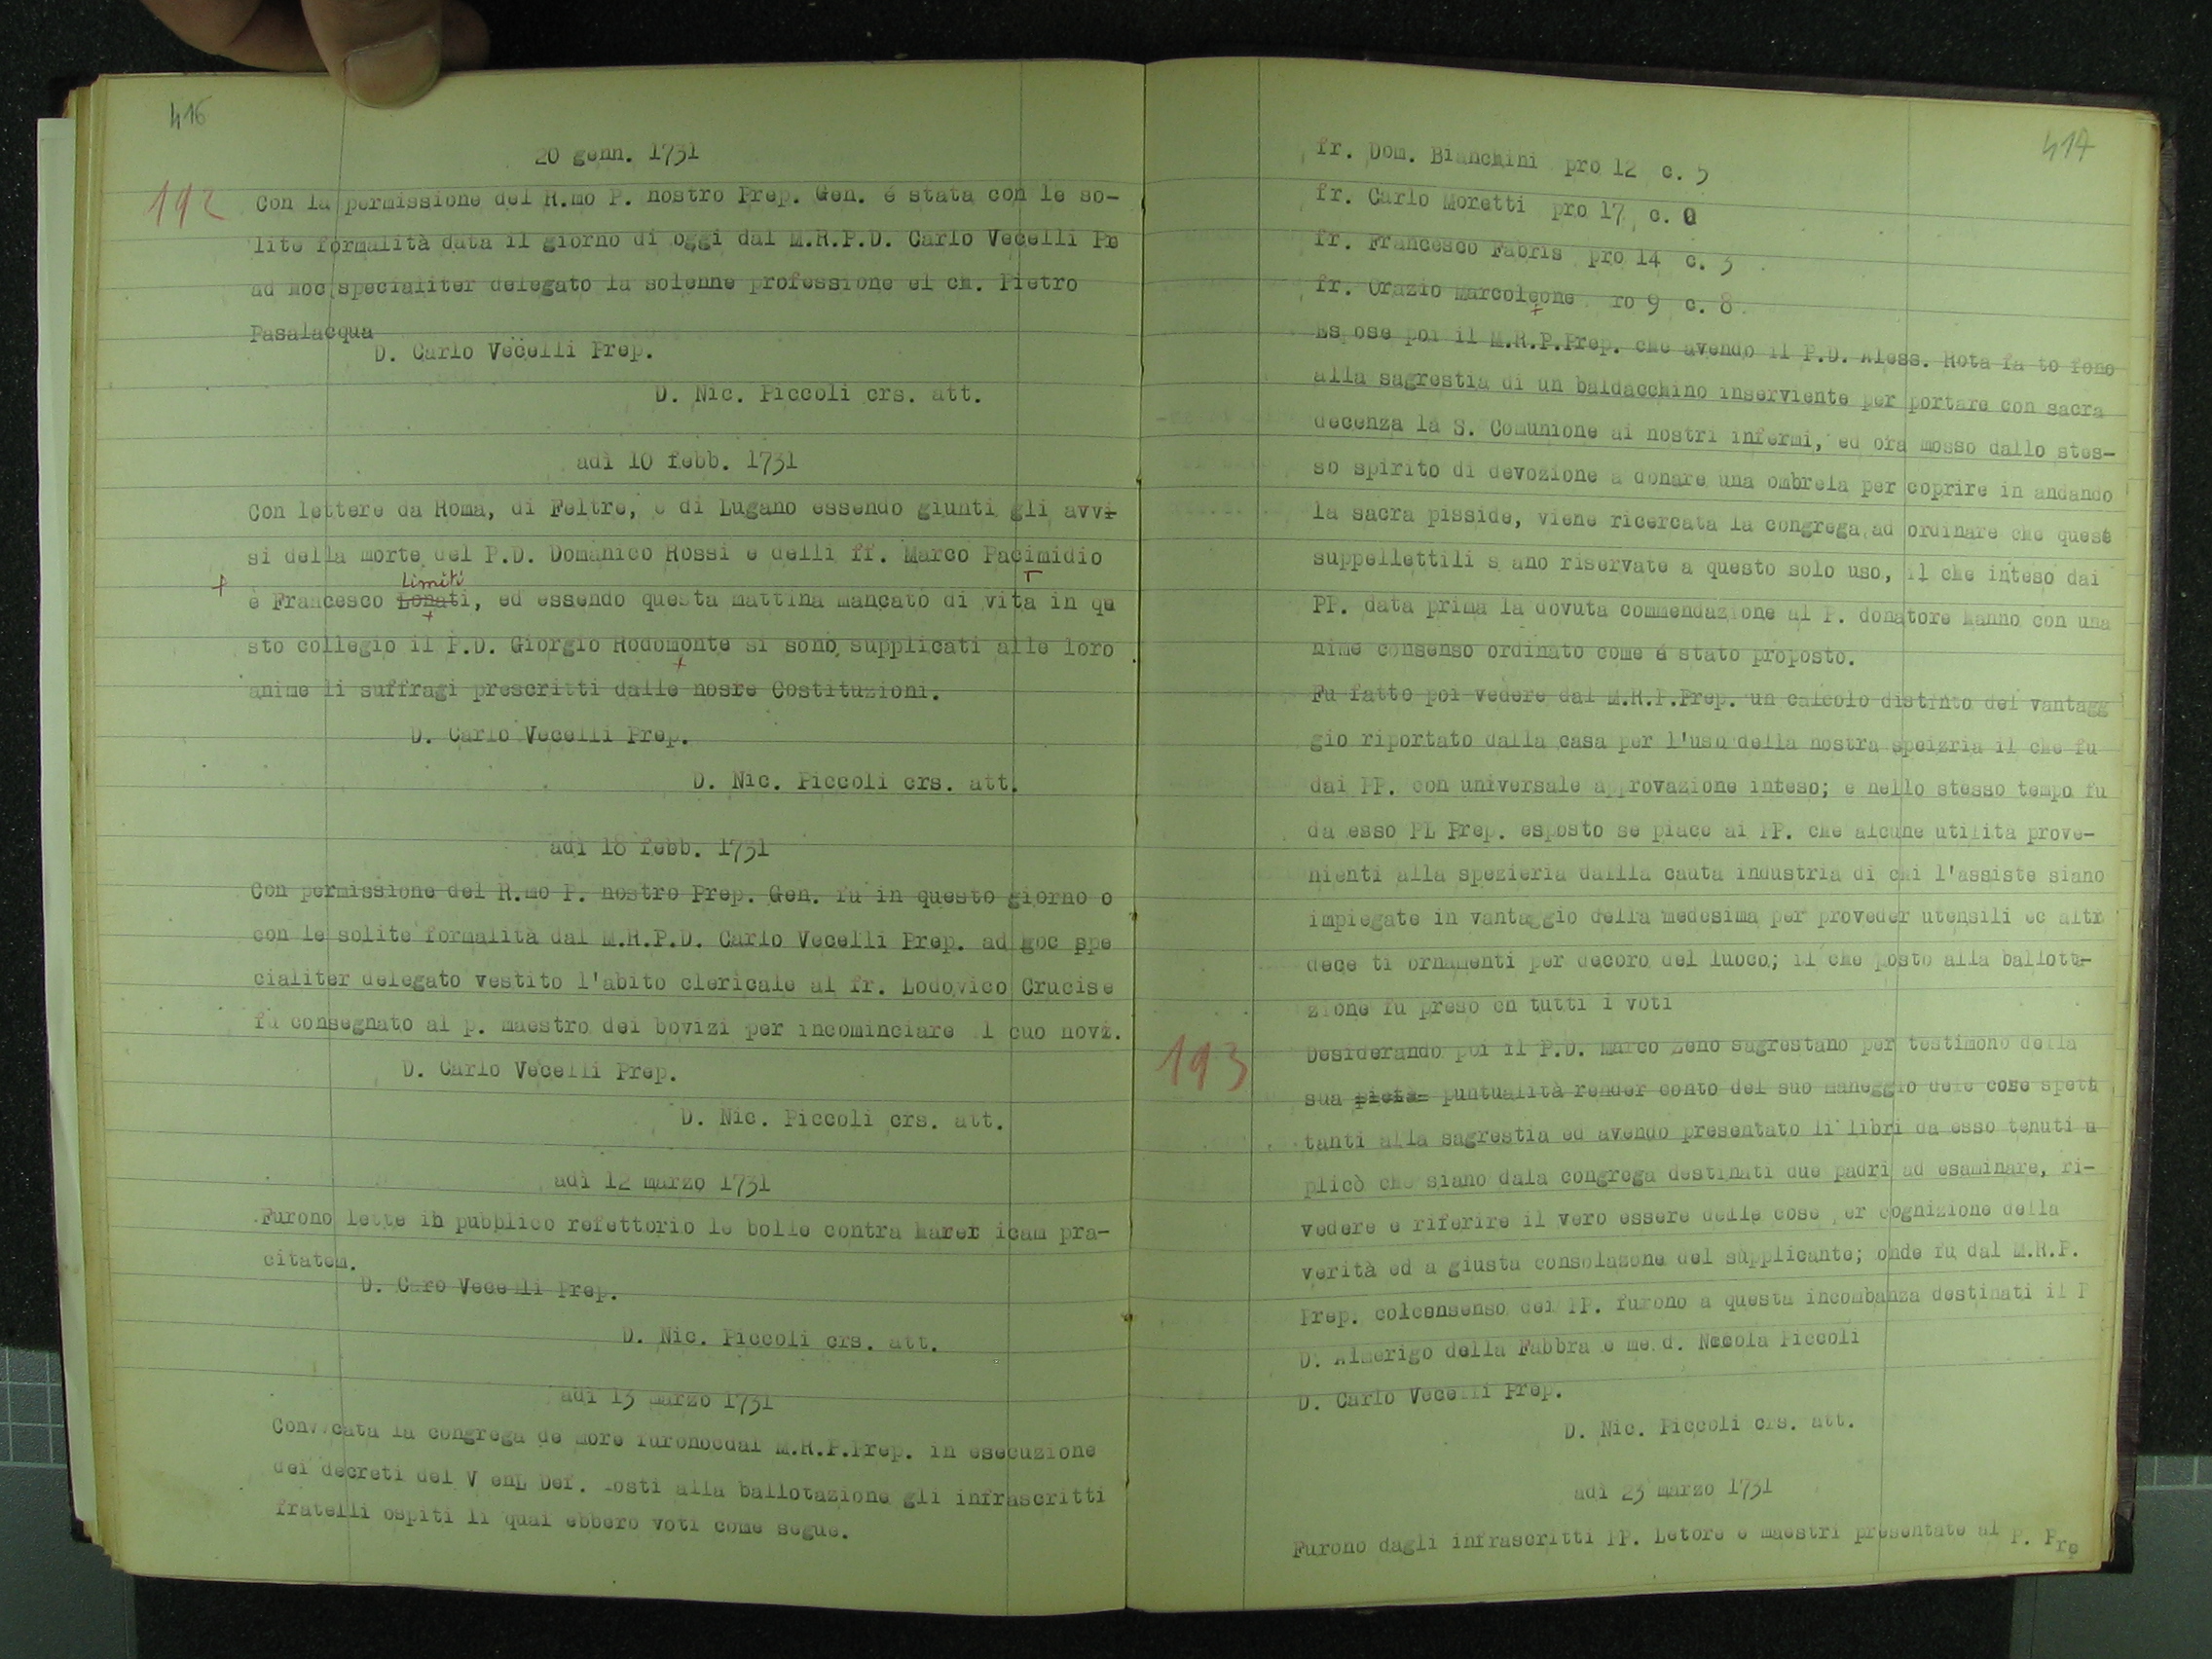 416
20 genn. 1731
192
Con la permissione del R.mo P. nostro Prep. Gen. é stata con le so-
lite formalità data il giorno di oggi dal M.R.P.D. Carlo Vecelli Pr
ad hoc specialiter delegato la solenne professione el ch. Pietro
Pasalacqua
D. Carlo Vecelli Prep.
D. Nic. Piccoli crs. att.
adì 10 febb. 1731
Con lettere da Roma, di Feltre, e di Lugano essendo giunti gli avvi
si della morte del P.D. Domanico Rossi e delli ff. Marco Pacimidio
Limiti
+ e Francesco Lonati, ed essendo questa mattina mancato di vita in qu
sto collegio il P.D. Giorgio Rodomonte si sono supplicati alle loro
anime li suffragi prescritti dalle nosre Costituzioni.
D. Carlo Vecelli Prep.
D. Nic. Piccoli crs. att.
adì 18 febb. 1731
Con permissione del R.mo P. nostro Prep. Gen. fu in questo giorno o
con le solite formalità dal M.R.P.D. Carlo Vecelli Prep. ad hoc spe
cialiter delegato vestito l'abito clericale al fr. Lodovico Crucis e
fu consegnato al p. maestro dei bovizi per incominciare l cuo novi.
D. Carlo Vecelli Prep.
D. Nic. Piccoli crs. att.
adì 12 marzo 1731
Furono lette ih pubblico refettorio le bolle contra haret icam pra-
citatem.
D. Caro Vecelli Prep.
D. Nic. Piccoli crs. att.
adì 13 marzo 1731
Convocata la congrega de more furono dal M.R.P.Prep. in esecuzione
dei decreti del V enL Def. osti alla ballotazione gli infrascritti
fratelli ospiti li quai ebbero voti come segue.
417
fr. Dom. Bianchini pro 12 c. 5
fr. Carlo Moretti pro 17 c. 0
fr. Francesco Fabris pro 14 c. 3
fr. Orazio Marcoleone ro 9 c. 8
Es ose poi il M.R.P.Prep. che avendo il P.D. Aless. Rota fa to fono
alla sagrestia di un baldacchino inserviente per portare con sacra
decenza la S. Comunione ai nostri infermi, ed ora mosso dallo stes-
so spirito di devozione a donare una ombrela per coprire in andando
la sacra pisside, viene ricercata la congrega ad ordinare che quest
suppellettili s ano riservate a questo solo uso, il che inteso dai
PP. data prima la dovuta commendazione al P. donatore hanno con una
nime consenso ordinato come é stato proposto.
Fu fatto poi vedere dal M.R.P.Prep. un calcolo distinto dei vantagg
gio riportato dalla casa per l'uso della nostra speizria il che fu
dai PP. con universale approvazione inteso; e nello stesso tempo fu
da esso PL Prep. esposto se piace ai PP. che alcune utilita prove-
nienti alla spezieria dallla cauta industria di chi l'assiste siano
impiegate in vantaggio della medesima per proveder utensili ec altr
dece ti ornamenti per decoro del luoco; il che posto alla ballota-
zione fu preso cn tutti i voti
193
Desiderando poi il P.D. Marco Zeno sagrestano per testimono della
sua pieta- puntualità render conto del suo maneggio dele cose spett
tanti alla sagrestia ed avendo presentato li libri da esso tenuti u
plicò che siano dala congrega destinati due padri ad esaminare, ri-
vedere e riferire il vero essere delle cose er cognizione della
verità ed a giusta consolazone del supplicante; onde fu dal M.R.P.
Prep. colconsenso dei PP. furono a questa incombanza destinati il P
D. Almerigo della Fabbra e me d. Nccola Piccoli
D. Carlo Vecelli Prep.
D. Nic. Piccoli crs. att.
adì 23 marzo 1731
Furono dagli infrascritti PP. Letore e maestri presentate al P. Pre